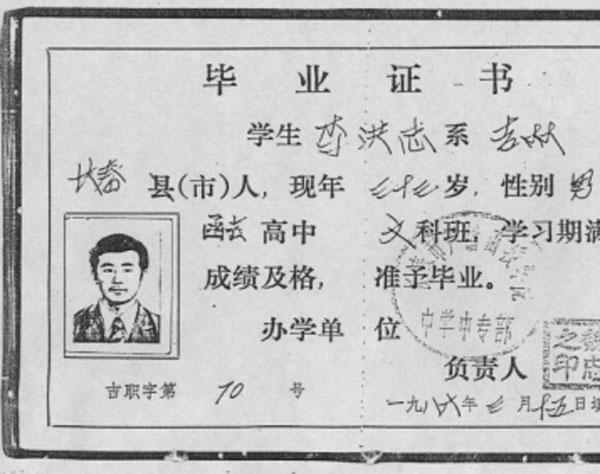 毕业证书
学生 李洪志 系 吉林
长春 县(市)人，现年 岁，性别 男
函长 高中 文 科班，学习期满
成绩及格，准予毕业。
办学单位
中学中专部
负责人
之印 志
吉职字第 70 号
一九八六年七月十五日填